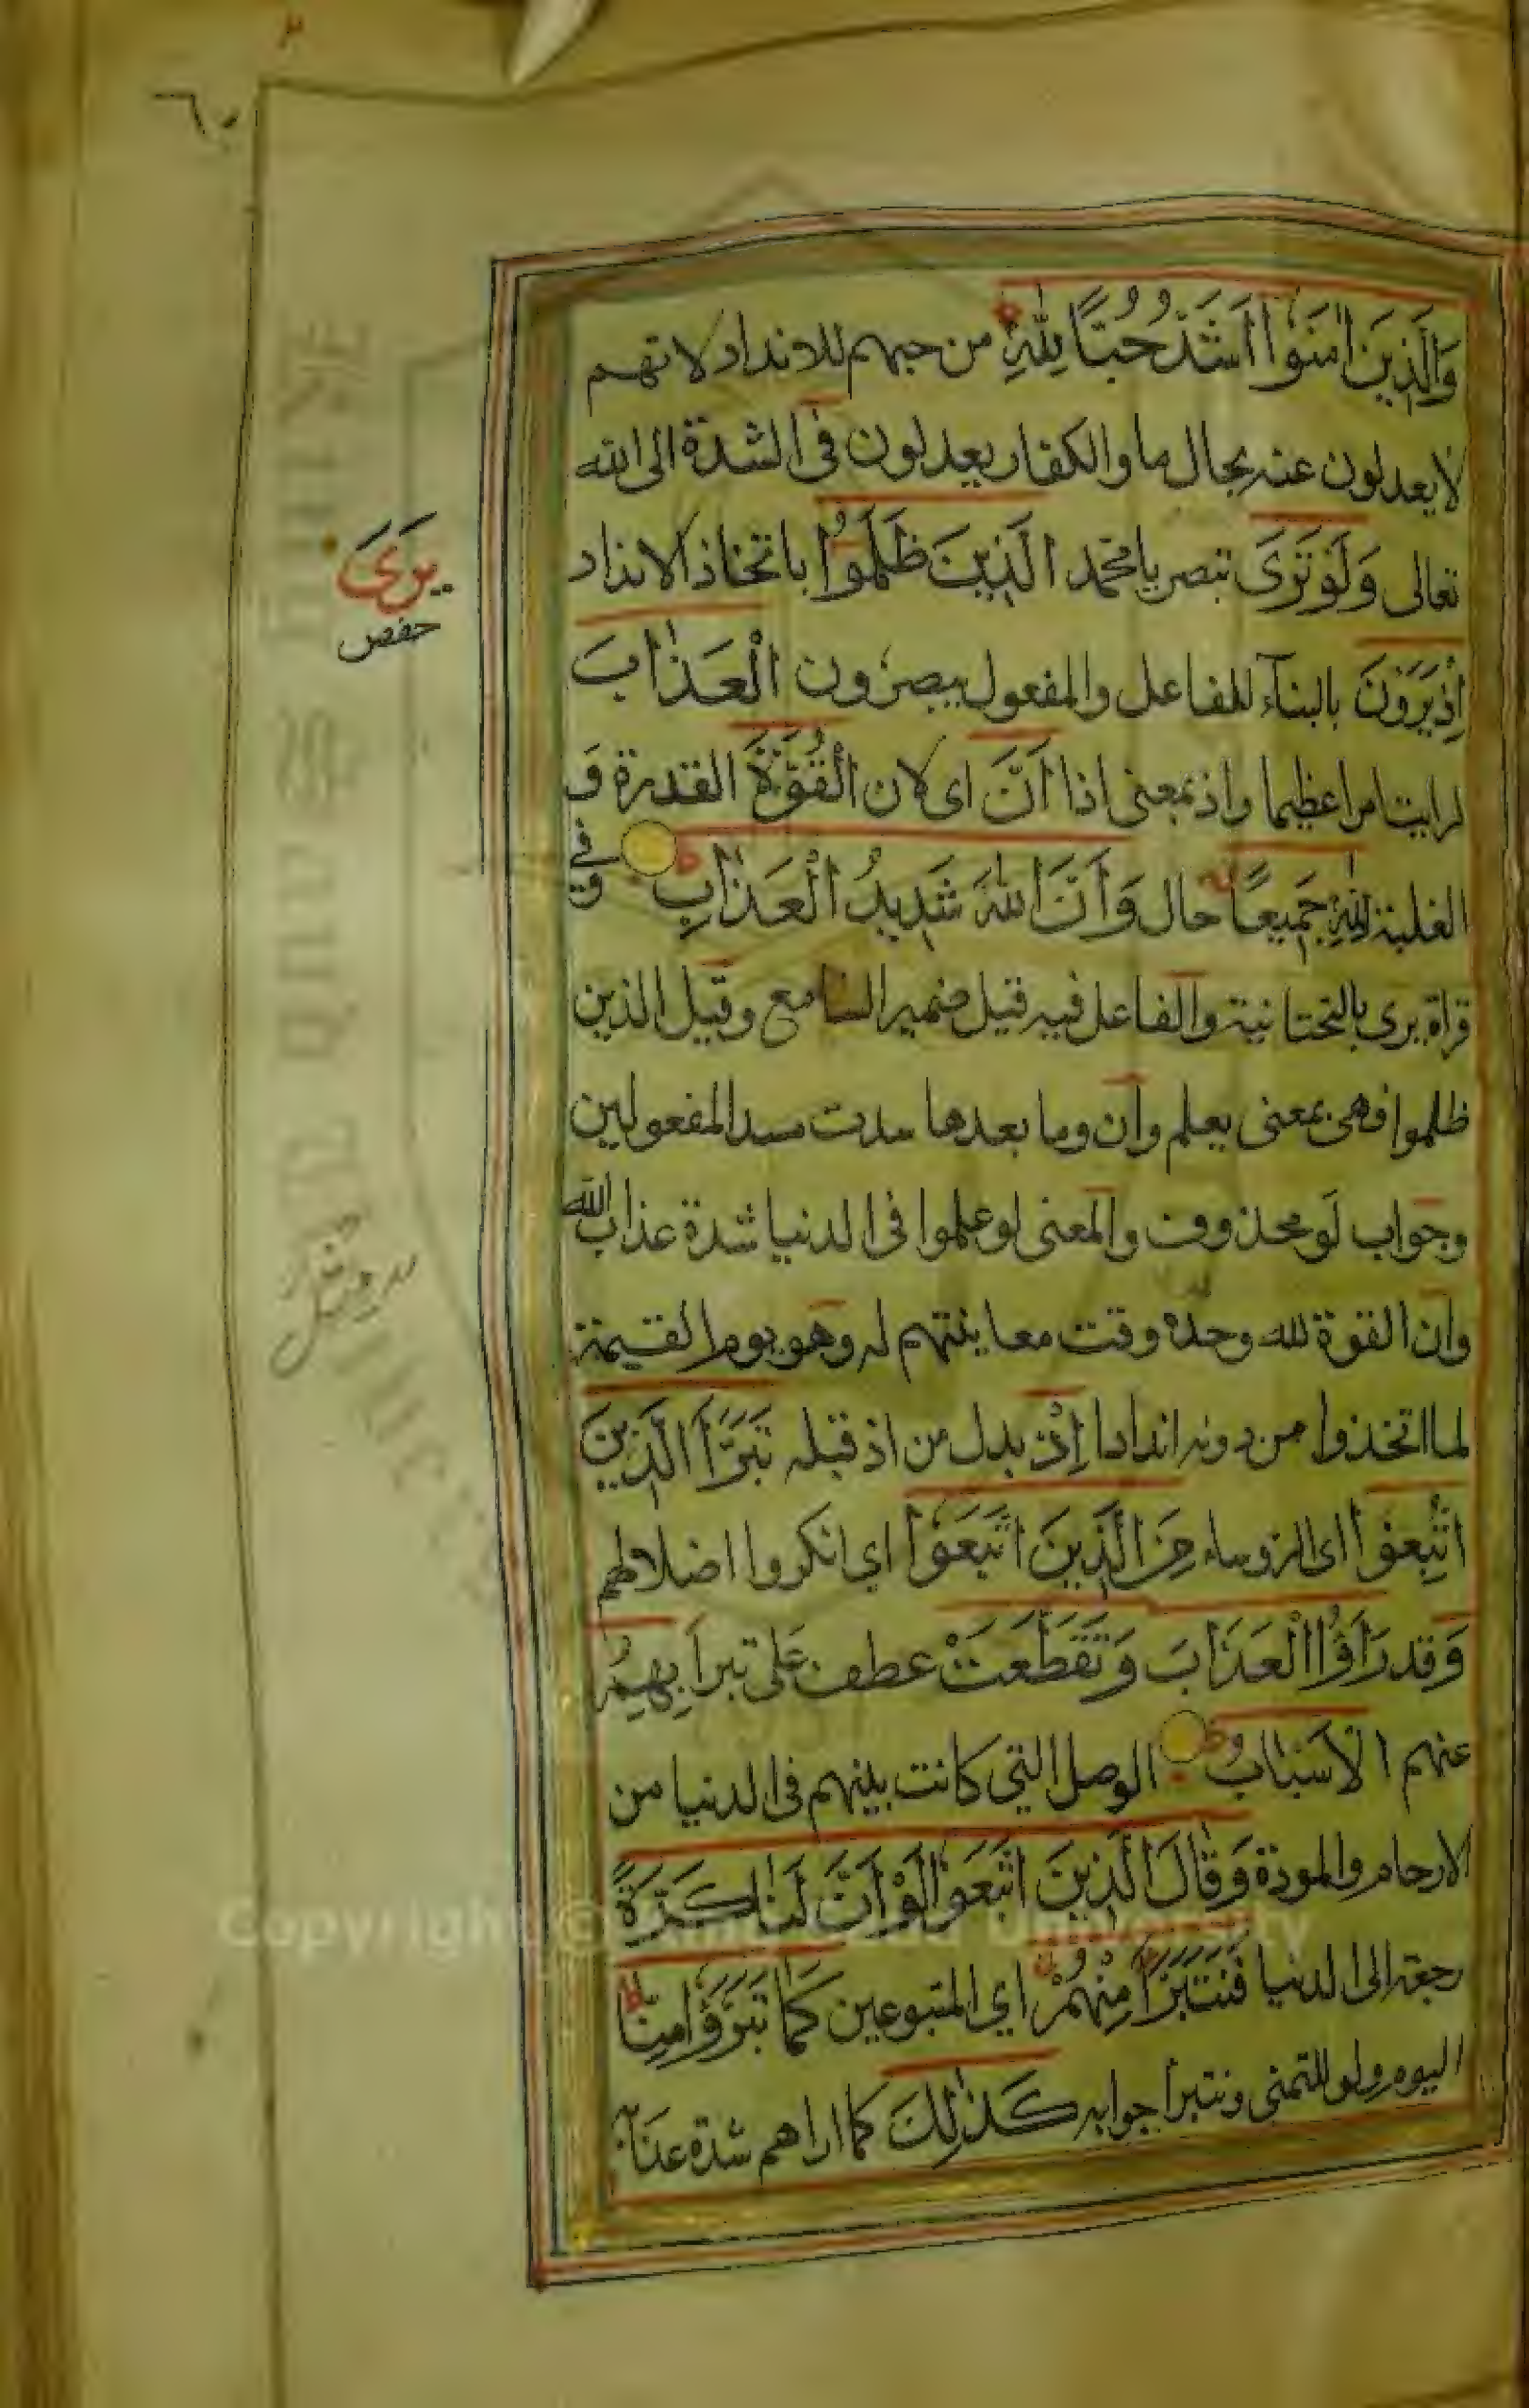 ٦٠
وَالَّذِينَ اٰمَنُوٓا اَشَدُّ حُبًّا لِلّٰهِ ط من حبهم للانداد لانهم
لا يعدلون عنه بحال ما والكفار يعدلون فى الشدة الى الله
تعالى وَلَوْ تَرَى تبصر يا محمد الَّذِينَ ظَلَمُوٓا باتخاذ الانداد
اِذْ يَرَوْنَ بالبنآء للفاعل والمفعول يبصرون الْعَذٰابَ
لرايت امرا عظيما واذ بمعنى اذا اَنَّ اى لان الْقُوَّةَ القدرة و
الغلبة لِلّٰهِ جَمِيعًا حال وَاَنَّ اللّٰهَ شَدِيدُ الْعَذٰابِ ط وفي
قراة يرى بالتحتانية والفاعل فيه قيل ضمير السامع وقيل الذين
ظلموا فهى بمعنى يعلم وان وما بعدها سدت مسد المفعولين
وجواب لو محذوف والمعنى لو علموا فى الدنيا شدة عذاب الله
وان القوة لله وحده وقت معاينتهم له وهو يوم القيمة
لما اتخذوا من دونه اندادا اِذْ بدل من اذ قبله تَبَرَّاَ الَّذِينَ
اتُّبِعُوا اى الرؤساء مِنَ الَّذِينَ اتَّبَعُوا اي انكروا اضلالهم
وَ قد رَاَوُا الْعَذَابَ وَتَقَطَّعَتْ عطف على تبرا بِهِمُ
عنهم الْاَسْبٰابُ الوصل التي كانت بينهم فى الدنيا من
الارحام والمودة وَقٰالَ الَّذِينَ اتَّبَعُوا لَوْ اَنَّ لَنٰا كَرَّةً
رجعة الى الدنيا فَنَتَبَرَّاَ مِنْهُمْ اي المتبوعين كَمٰا تَبَرَّؤُا مِنّٰا ط
اليوم ولو للتمنى ونتبرا جوابه كَذٰلِكَ كما اراهم شدة عذابه
يَرَى
حفص
Copyright © University